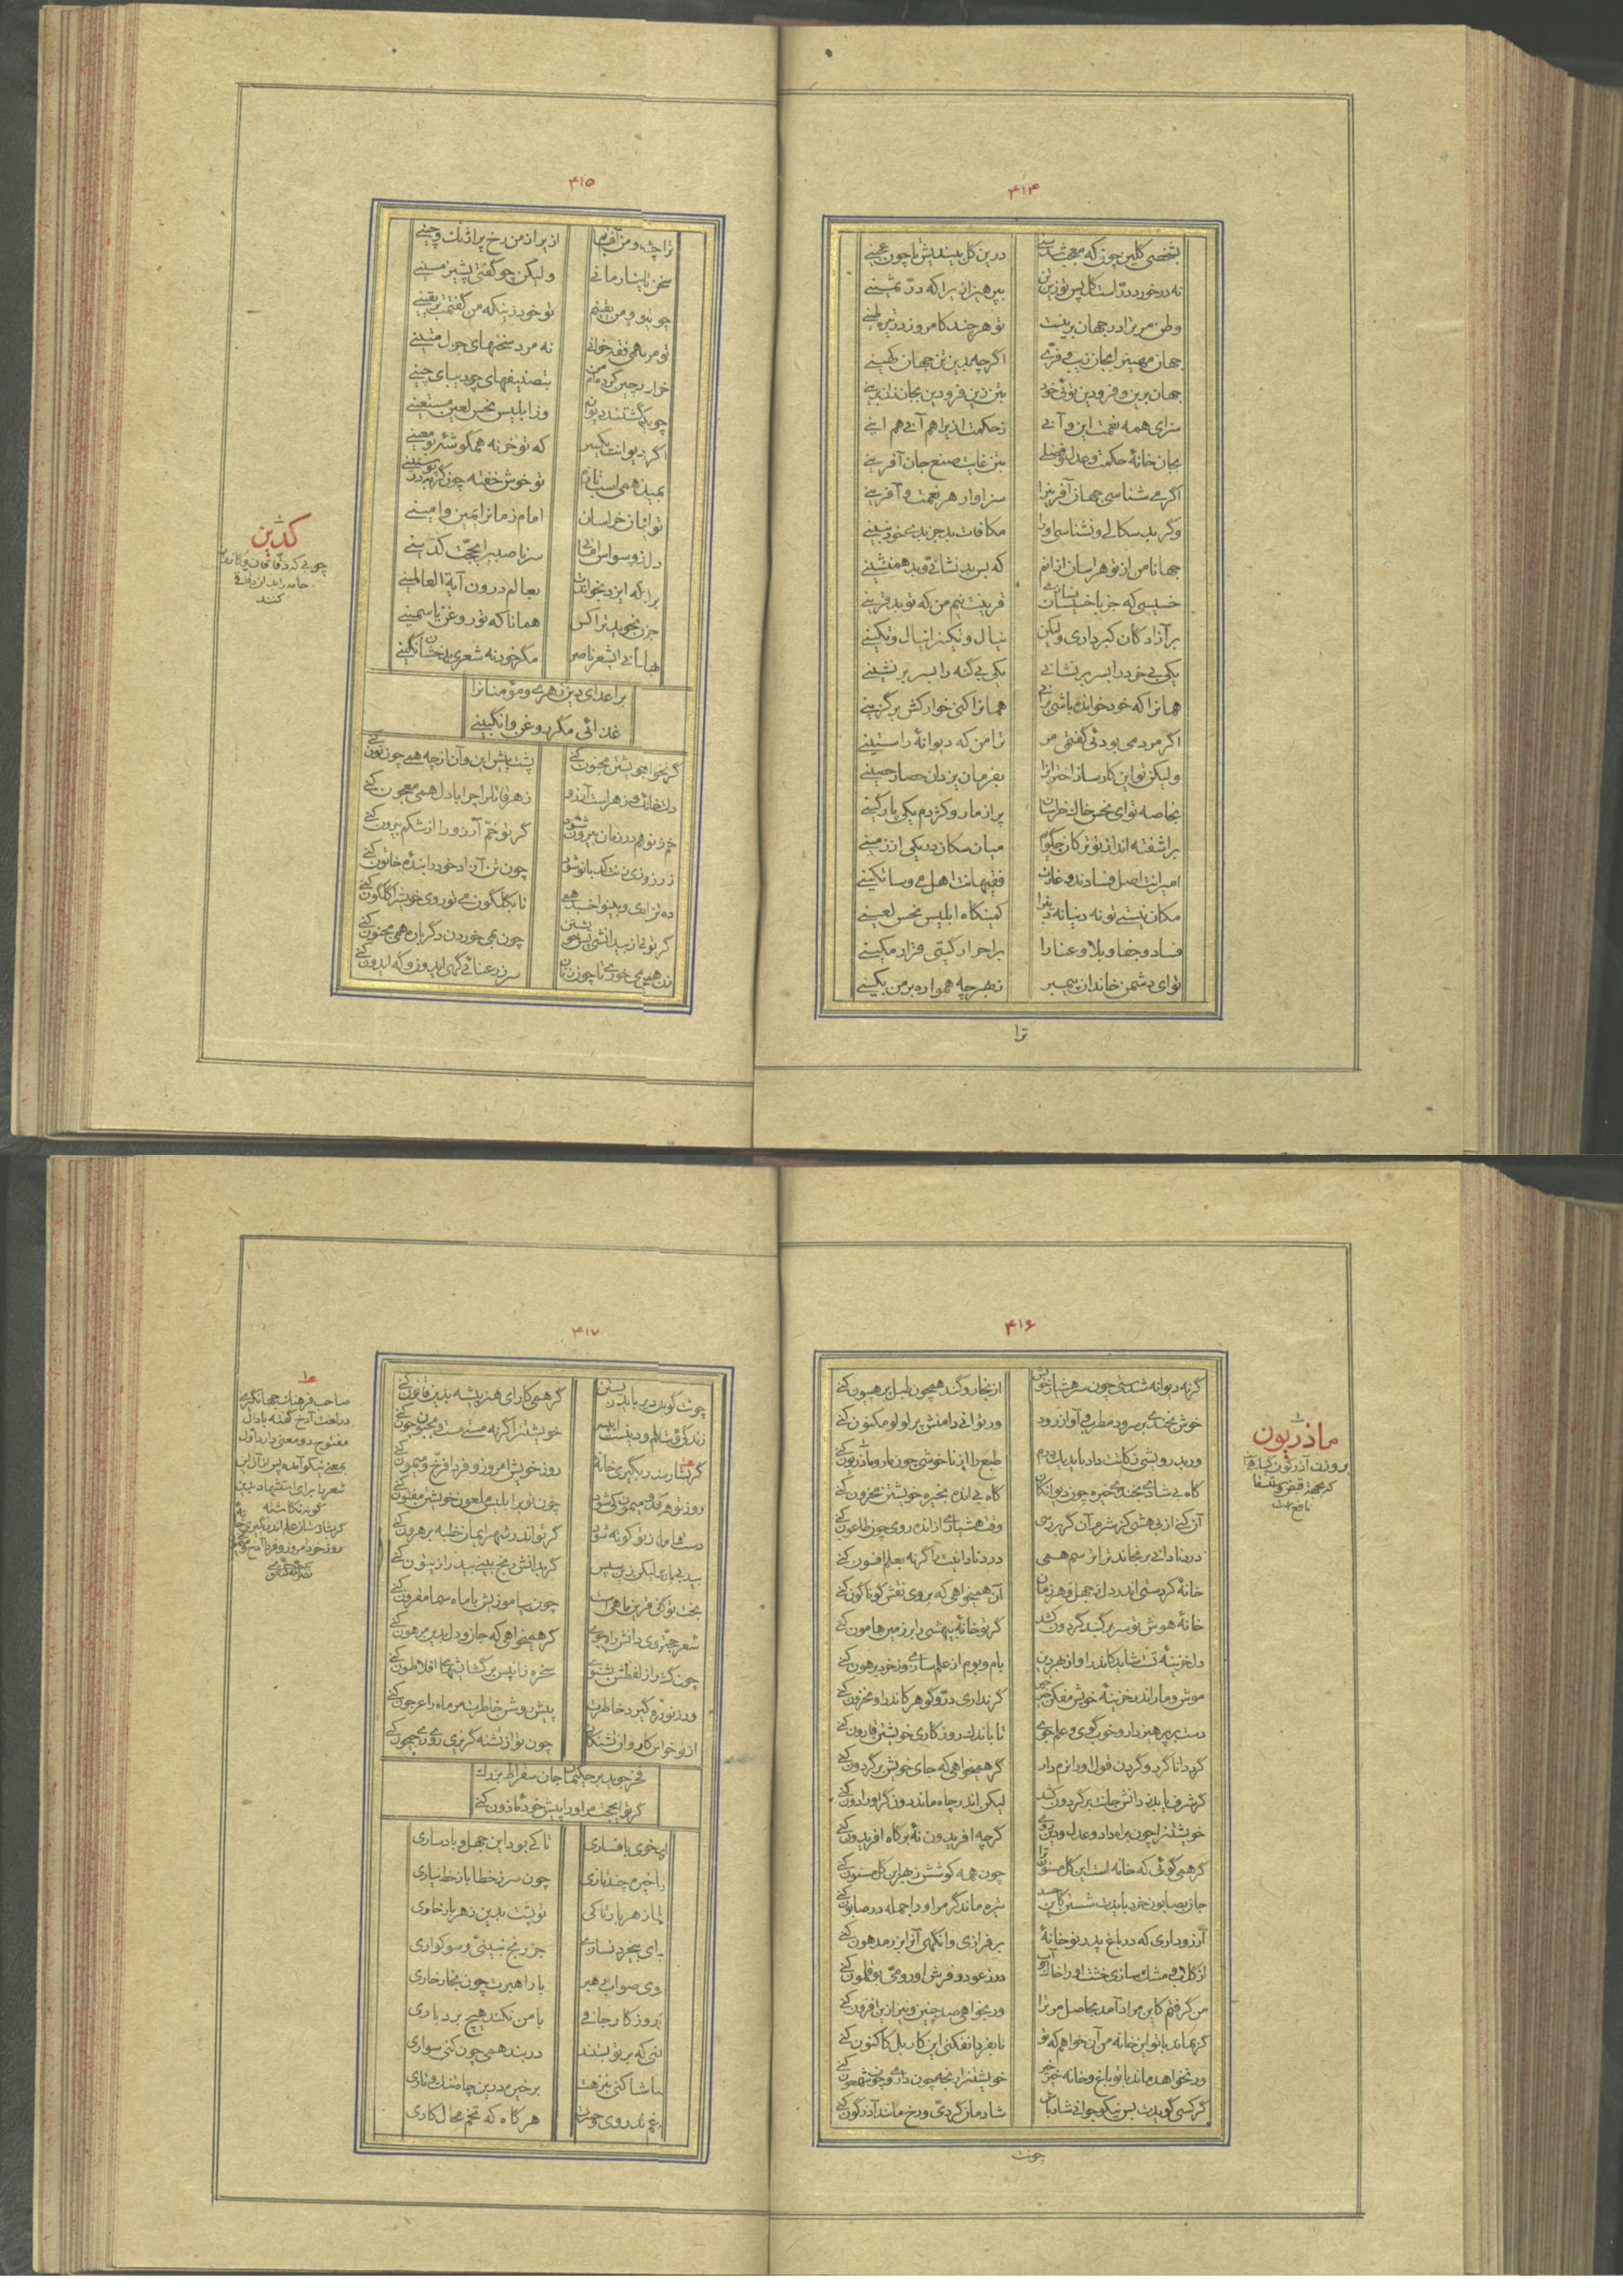 ۴۱۴
بشخصی گلین چونکه معجب شدستی درین گل بیندیش تا چون عجینی
نه در خورد درّ است گل پس تو زین تن بپرهیز ازیرا که درّ ثمینی
وطن مر ترا در جهان برینست تو هر چند کامروز در تیره طینی
جهان مهین را بجان زیب و فرّی اگر چه بدین تن جهان کهینی
جهان برین و فرودین توئی خود بتن زین فرودین بجان زان برینی
سزای همه نعمت این و آنی ز حکمت ازیرا هم آنی هم اینی
بجان خانهٔ حکمت و عدل و فضلی بتن غایت صنع جان آفرینی
اگر می شناسی جهان آفرینرا سزاوار هر نعمت و آفرینی
وگر بد سگالی و نشناسی او را مکافات بد جز بدی خود نبینی
جهانا من از تو هراسان ازانم که بس بد نشانیّ و بد همنشینی
خسیسی که جز با خسیسان نسازی قرینت نیم من که تو بد قرینی
بر آزادگان کبر داری ولیکن ینال و تکین را ینال و تکینی
یکی بی خرد را بسر بر نشانی یکی بی گنه را بسر بر نشینی
همانرا که خود خوانده باشی برانی همانرا کنی خوار کش برگزینی
اگر مردمی بودئی گفتمی مر ترا من که دیوانهٔ راستینی
ولیکن تو این کار ساز اختران را بفرمان یزدان حصار حصینی
بخاصه تو ای نحس خاک خراسان پر از مار و کژدم یکی پارگینی
بر آشفته اند از تو ترکان چگویم میان سگان در یکی از زمینی
امیرانت اصل فسادند و غارت فقیهانت اهل می و ساتگینی
مکان نیستی تو نه دنیا نه دین را کمینگاه ابلیس نحس لعینی
فساد و جفا و بلا و عنا را بر احرار گیتی قرار مکینی
تو ای دشمن خاندان پیمبر ز بهر چه همواره بر من بکینی
ترا
۴۱۵
ترا چشم و من آفتابم از یراز من رخ پر آژنگ و چینی
ولیکن چو گفتی پشیز مسینی
چو بدو و من یقینم تو خود زینکه من گفتمت بر یقینی
تو مر همی فقه خوانی نه مرد سخنهای جزل متینی
بتصنیفهای چو دیبای چینی
وز ابلیس نحس لعین مستعینی
اگر دیوانت یکسر که تو خر نه همگوشه بو معینی
تو خوش خفته چون گربه در پوستینی
تو اباز خراسان امام زمانرا یمین و امینی
سر ناصبی را بحجّت کدینی
برا که ایزد بخواندت بعالم درون آیة العالمینی
جز نجوید ترا کس همانا که تو روغن یاسمینی
مگر خود نه شعری بدخشان نگینی
بر اعدای دین زهری و مؤمنانرا
غذائی مگر روغن و انگبینی
گر نخواهی خویشتن مجنون کنی پشت پیش این و آن از چه همی چون نون کنی
دلت خانهٔ زهر است آرزو زهر قاتل را چرا با دل همی معجون کنی
خم ز تو هم در زمان بیرون شود گر تو خمّ آرزو را از شکم بیرون کنی
زارزوی زنت کدبانو شود چون تن آزاد خود را بندهٔ خاتون کنی
تا بگلگون می تو روی خویش را گلگون کنی
چون بمی خوردن دگر باره همی مجنون کنی
سر ز رعنائی گهی ایدر و گه ایدون کنی
کدین
چوبی که دقاقان و گازران
جامه را بدان دقاقی
کنند
۴۱۶
گر نه دیوانه شدستی چون سر هشیار خویش از بخار و گند همچون طبل پر هپیون کنی
خوش بخندی بر سرود مطرب و آواز رود ور توانی دامنش پر لولو مکنون کنی
ور بدرویشی زکاتت داد باید یک درم طبع را از ناخوشی چون مار و ماذریون کنی
گاه بی شادی بخندی خیره چون دیوانگان گاه بی انده بخیره خویشتن محزون کنی
آن کنی از بی هشی کز شرم آن گر بر رسی وقت هشیاری از انده روی چون طاعون کنی
درد نادانی برنجاند ترا ترسم همی درد نادانیت را گر نه بعلم افسون کنی
خانهٔ کردستی اندر دل ز جهل و هر زمان آن همیخواهی که بر وی نقش گوناگون کنی
خانهٔ هوش تو سر بر گنبد گردون کشد گر تو خانهٔ بیهشی را بر زمین هامون کنی
دل خزینهٔ تست شاید کاندر او از بهر دین بام و بوم از علم سازی وز خرد پرهون کنی
موش و مار اندر خزینهٔ خویش مفکن خیر خیر گر نداری درّ و گوهر کاندر او مخزون کنی
دست پرهیز دار و خوب گوی و علم جوی تا باندک روزگاری خویشتن قارون کنی
گرد دانا گرد و گردن قول او را نرم دار گر همیخواهی که جای خویش بر گردون کنی
گر شرف یابد ز دانش جانت بر گردون کشد لیکن اندر چاه ماند دون گر او را دون کنی
خویشتنرا چون براه داد و عدل و دین روی گر چه افریدون نهٔ بر گاه افریدون کنی
گر همی گوئی که خانه است این گل مسنون ترا چون همه کوشش ز بهر این گل مسنون کنی
جان بصابون خرد بایدت شستن کاین جسد تیره ماند گر مر او را جمله در صابون کنی
آرزو داری که در باغ پدر نو خانهٔ بر فرازی وانگهی آنرا بزر مدهون کنی
از گلاب و مشک سازی خشت او را خاک و آب در ز عود و فرش او رومیّ و بوقلمون کنی
من گرفتم کاین مراد آمد بحاصل مر ترا ور بخواهی صد چنین و نیز ازین افزون کنی
گر بماند با تو این خانه من آن خواهم که تو تا بفردا نفکنی این کار بل کاکنون کنی
ور نخواهد ماند با تو باغ و خانه خیر خیر خویشتنرا رنجه چون داری و چون شمعون کنی
گر کسی گویدت بس نیکو جوانی شاد باش شادمان گردیّ و رخ مانند آذرگون کنی
چونت
ماذریون
بر وزن آذرگون
۴۱۷
چونت گوید دیر باید زیستن گر همی کار ای هنر پیشه بدین قانون کنی
خویشتنرا گر نه مستی مست و مجنون چون کنی
روز خویش امروز و فردا فرّخ و میمون کنی
روز تو هرگز میمون کی شود چون تو بر ابلیس ملعون خویشتن مفتون کنی
دست هامان ز تو کوته شود گر تو اندر شهر ایمان خطبه بر هرون کنی
بید بی بار لیکن زین سپس گر بدانش رنج بینی بید را زیتون کنی
بخت تو گر قرین ماهی است چون بیاموزیش با ماه سما مقرون کنی
شعر حجّت روی دانش را بجوی گر همیخواهی که جان و دل بدین مرهون کنی
چون گشت راز لفظش بشنوی سخره زان پس بر گشایشهای افلاطون کنی
ور ز نو زه گیرد خاطرت پیش روشن خاطرت مر ماه را عرجون کنی
چون تو از تشنه گریزی روی زی جیحون کنی
فخر جوید بر حکیمان جان سقراط بزرگ
گر تو ای حجت مر او را پیش خود ماذون کنی
ای خوی بافساری تا کی بود این جهل و بادساری
چون سر ز خطا باز خط نیاری
تو پشت بدین زهر بار خاوری
جز رنج نبینی و سوکواری
وی صواب رهبر با راهبرت چون بخار خاری
با من نکند هیچ بردباری
بنی که بر تو بستند در بند همی چون کنی سواری
تماشا کنی بنزهت بر خیره در این چاه تنک و تاری
هر گاه که تخم محال کاری
صاحب فرهنگ جهانگیری
در لغت آذخ گفته با دال
مفتوح دو معنی دارد اوّل
بمعنی نیکو آمده پس از آن این
شعر را برای استشهاد بدین
گونه نگاشته